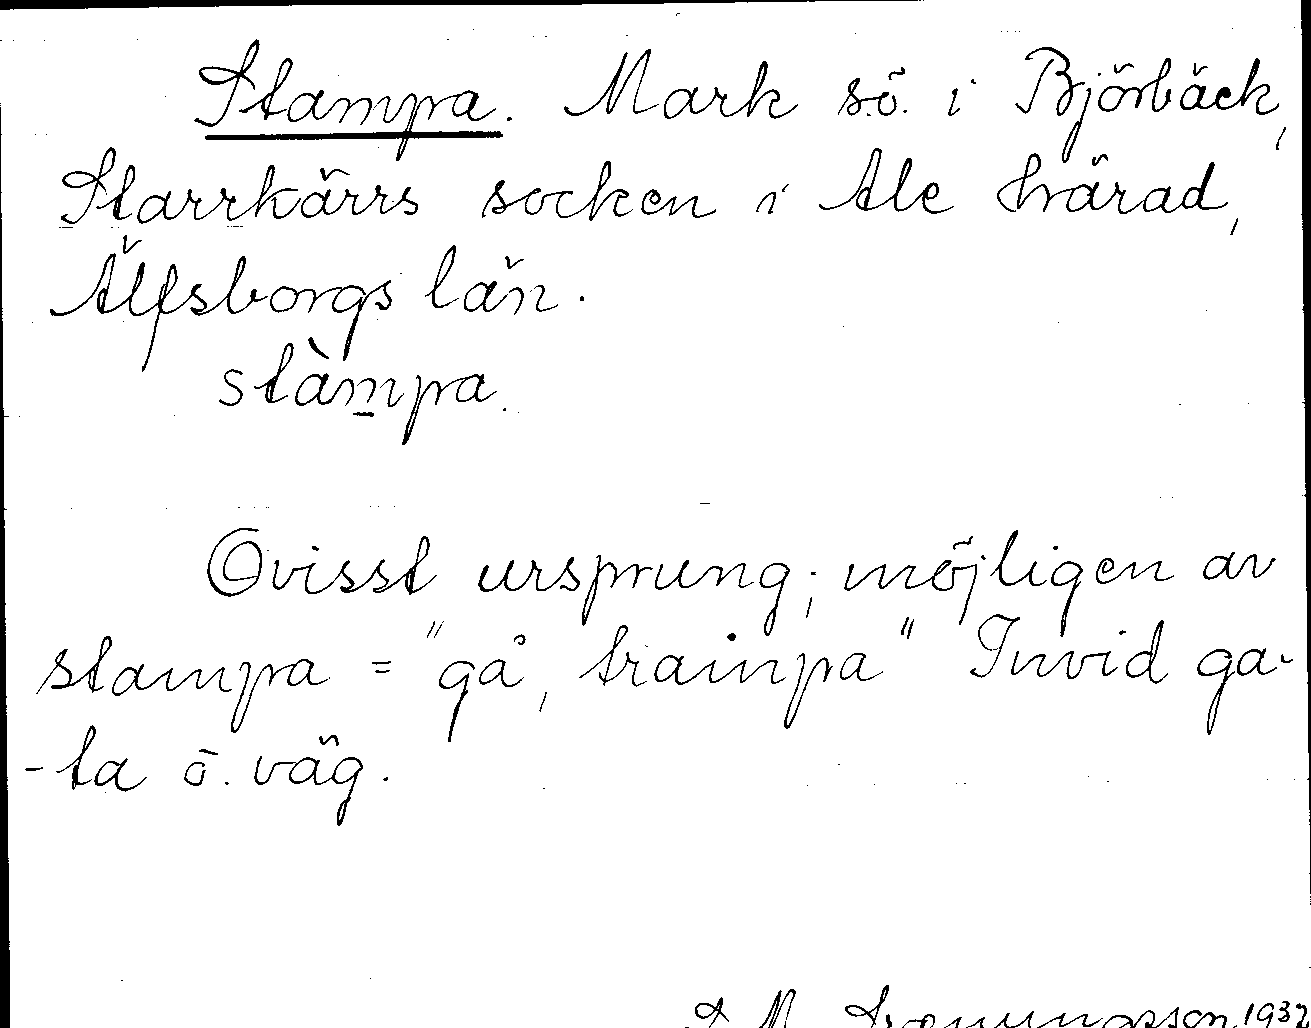 Stampa. Mark s.ö. i Björbäck,
Starrkärrs socken i Ale härad,
Älfsborgs län.
stàmpa.
Ovisst ursprung; möjligen av
stampa = "gå, trampa" Invid ga-
-ta o. väg.
1932